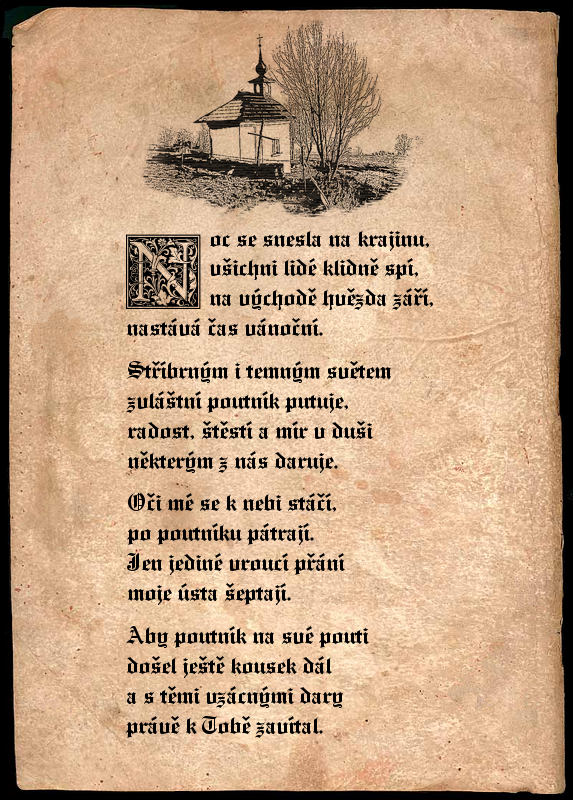 Noc se snesla na krajinu,
všichni lidé klidně spí,
na východě hvězda září,
nastává čas vánoční.
Stříbrným i temným světem
zvláštní poutník putuje,
radost, štěstí a mír v duši
některým z nás daruje.
Oči mé se k nebi stáčí,
po poutníku pátrají.
Jen jediné vroucí přání
moje ústa šeptají.
Aby poutník na své pouti
došel ještě kousek dál
a s těmi vzácnými dary
právě k Tobě zavítal.